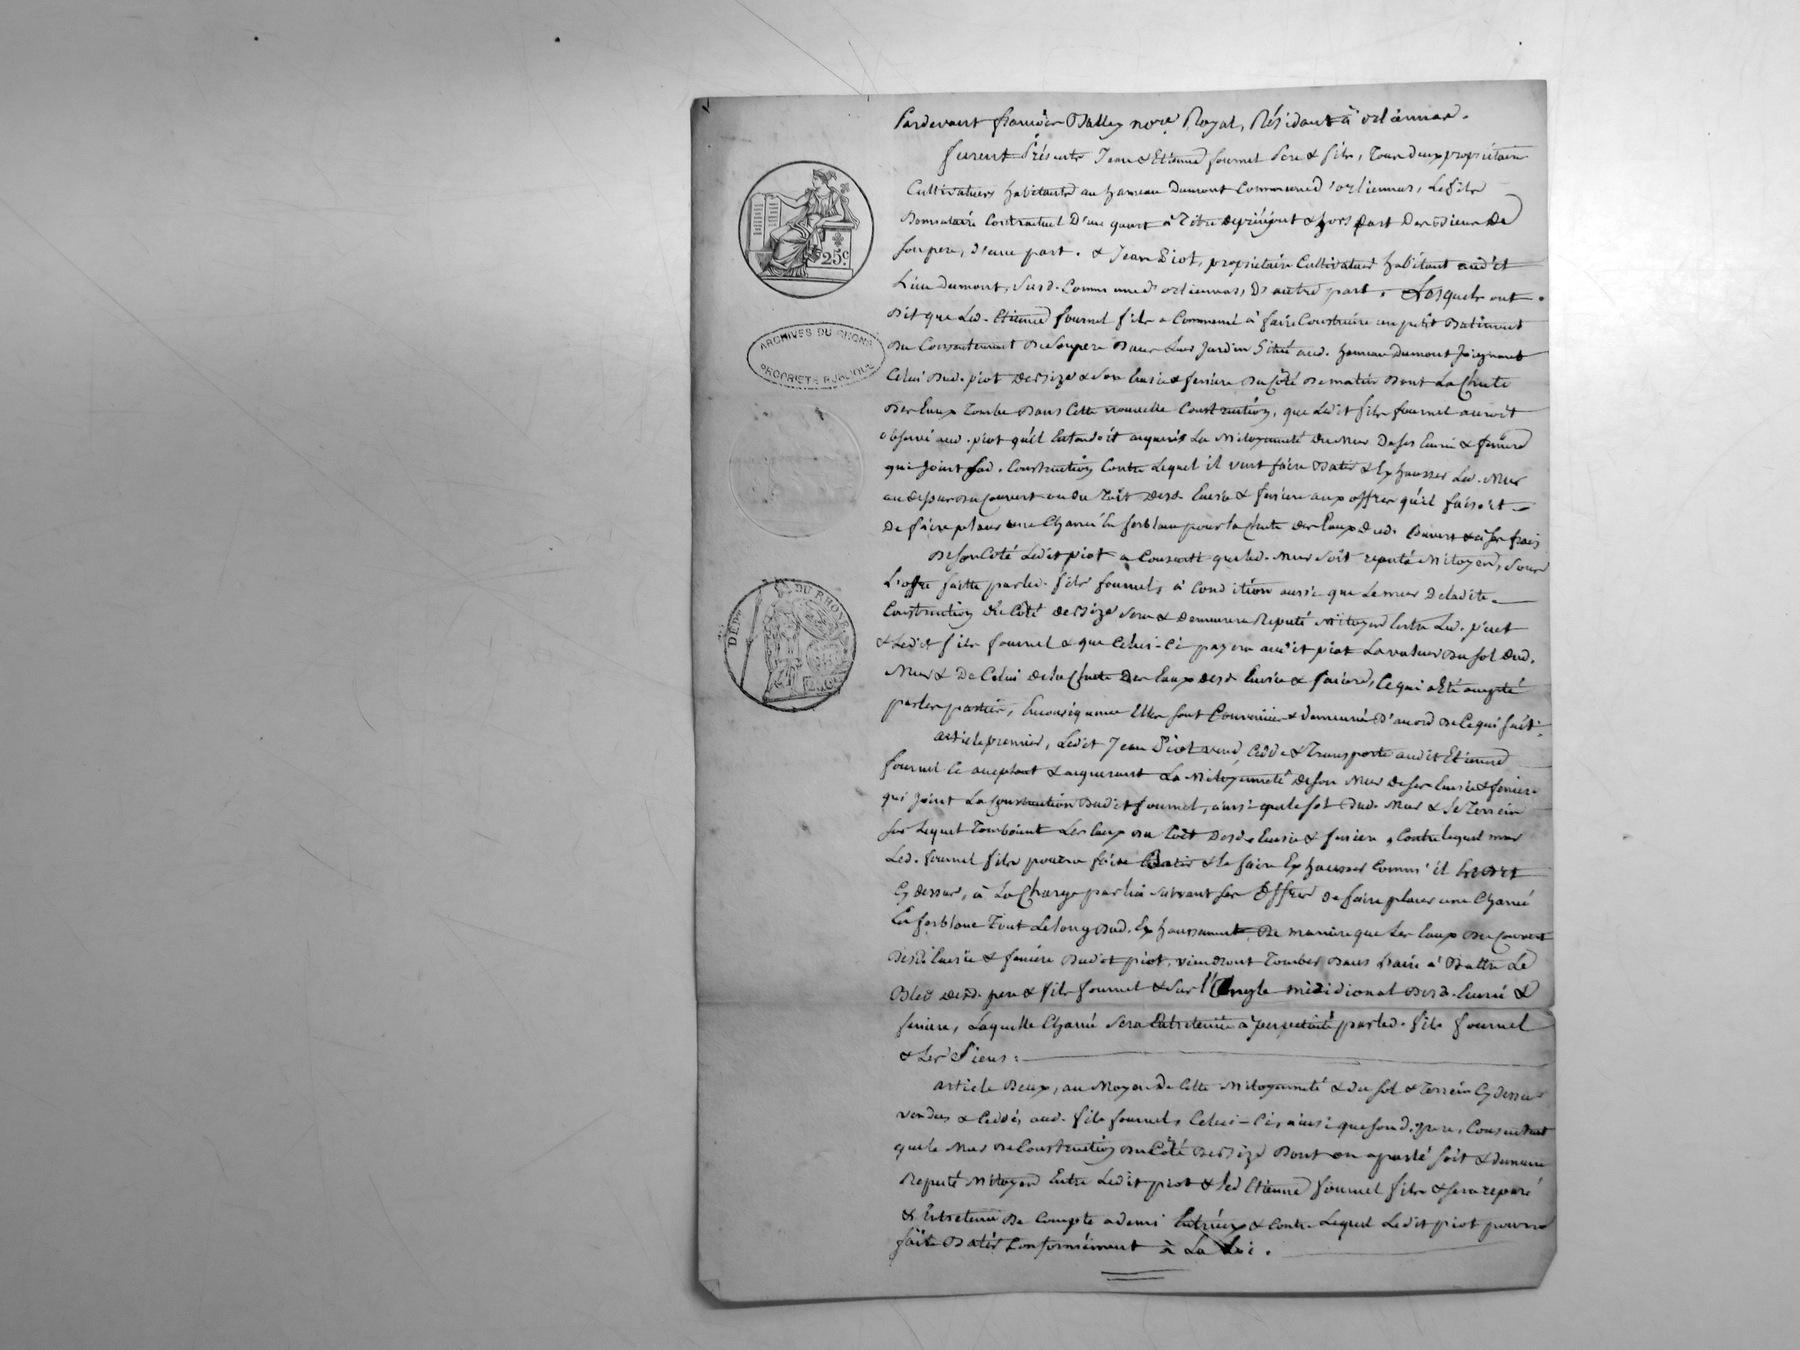 Pardevant françois Dalley no.re Royal, Résidant à orliennas.
furent Présents Jean & Etienne fournel Pere & fils, Tous deux propriétaires
Cultivateurs habitants au hameau Dumont Commune d'orliennas, Le fils
Donnataire Contractuel D'un quart à Titre de préciput & hors part Des Biens De
son pere, D'une part. & Jean Piot, propriétaire Cultivateur habitant audit
Lieu Dumont, Susd. Commune d'orliennas, D'autre part. Lesquels ont
Dit que Led. Etienne fournel fils a Commencé à faire Construire un petit Batiment
Du Consentement De Son pere Dans Leur Jardin Situé aud. hameau Dumont Joignant
Celui Dud. piot De Bize & Son Ecurie & feniere Du Côté De matin Dont La Chute
Des Eaux Tombe Dans Cette nouvelle Construction, que Ledit fils fournel auroit
observé aud. piot qu'il Entendoit acquerir La Mitoyenneté Du Mur De ses Ecurie & feniere
qui Joint sad. Construction Contre Lequel il veut faire Batir & Exhausser Led. Mur
au Dessus Du Couvert ou Du Toit Desd. Ecurie & feniere aux offres qu'il faisoit
De faire placer une Chanée En ferblanc pour la Chute Des Eaux Dud. Couvert & à ses frais
De son Coté Ledit piot a Consenti que led. Mur Soit reputé Mitoyen, Sous
L'offre faitte par led. fils fournel, à Condition aussi que Le mur De ladite
Construction Du Côté De Bize Sera & Demeurera Reputé Mitoyen Entre Led. piot
& Ledit fils fournel & que Celui-Ci payera audit piot La valeur Du Sol Dud.
Mur & De Celui De la Chute Des Eaux Desd. Ecurie & feniere, Ce qui a Eté accepté
par les parties, En conséquence Elles sont Convenues & demeurées D'acord De Ce qui suit:
article premier, Ledit Jean Piot vend, Cedde & Transporte audit Etienne
fournel Ce acceptant & acquerant La Mitoyenneté De son Mur De ses Ecurie & feniere
qui Joint La Construction Dudit fournel, ainsi que le sol Dud. Mur & Le Terrein
sur Lequel Tomboient Les Eaux Du Toit Desd. Ecurie & feniere, Contre lequel mur
Led. fournel fils pourra faire Batir & le faire Exhausser Comme il Est Dit
Cy dessus, à La Charge par lui suivant ses Offres De faire placer une Chanée
En ferblanc Tout Le long Dud. Exhaussement De maniere que Les Eaux Du Couvert
Desd. Ecurie & feniere Dudit piot, viendront Tomber Dans L'aire à Battre Le
Bled Desd. pere & fils fournel & Sur l'Angle méridional Desd. Ecurie &
feniere, Laquelle Chanée Sera Entretenüe à perpétuité par led. fils fournel
& Les Siens:
article Deux, au Moyen De Cette Mitoyenneté & du Sol & Terrein Cy dessus
vendus & Ceddés aud. fils fournel, Celui-Ci, ainsi que son d. pere, Consentent
que le Mur De Construction Du Côté De Bize Dont on a parlé soit & demeure
Reputé Mitoyen Entre Ledit piot & Led Etienne fournel fils & sera reparé
& Entretenu De Compte a demi Entr'eux & Contre Lequel Ledit piot pourra
faire Batir Conformément à La Loi.
25.c
ARCHIVES DU RHONE
PROPRIETE PUBLIQUE
DÉPT DU RHONE